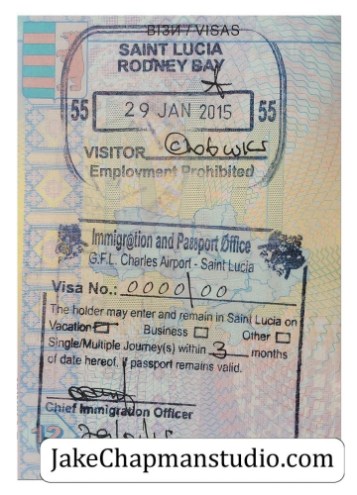 ВІЗИ / VISAS
SAINT LUCIA
RODNEY BAY
55 29 JAN 2015 55
VISITOR
Employment Prohibited
Immigration and Passport Office
G.F.L. Charles Airport - Saint Lucia
Visa No.: 0000/00
The holder may enter and remain in Saint Lucia on
Vacation Business Other
Single/Multiple Journey(s) within 3 months
of date hereof, if passport remains valid.
Chief Immigration Officer
12
JakeChapmanstudio.com